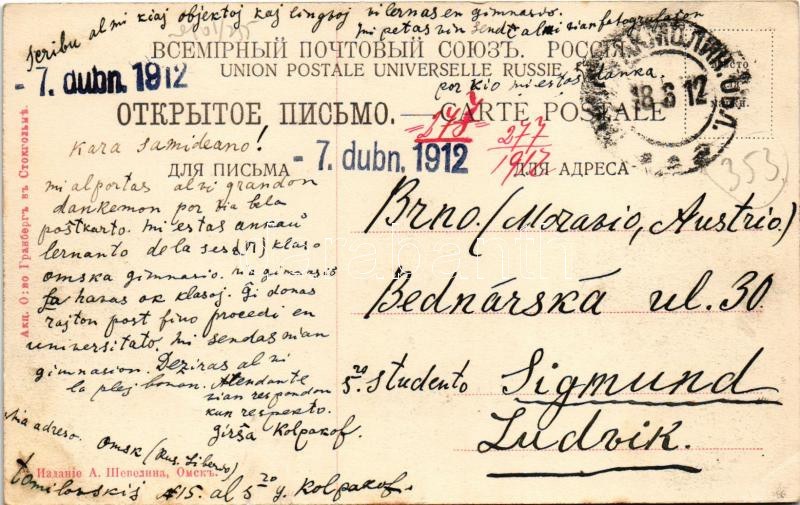 skribu al mi kiaj objektoj kaj lingvoj vi lernas en gimnasio.
mi petas vin sendi al mi vian fotografaĵon
por kio mi estas danka.
ВСЕМІРНЫЙ ПОЧТОВЫЙ СОЮЗЪ. РОССІЯ.
UNION POSTALE UNIVERSELLE RUSSIE.
- 7. dubn. 1912
ОТКРЫТОЕ ПИСЬМО. — CARTE POSTALE
18 6 12
278
277
1912
353
- 7. dubn. 1912
ДЛЯ ПИСЬМА
ДЛЯ АДРЕСА
Kara samideano!
mi alportas al vi grandon
dankemon por via bela
postkarto. mi estas ankaŭ
lernanto de la ses(VI) klaso
omska gimnasio. nia gimnasio
havas ok klasoj. Ĝi donas
rajton post fino procedi en
universitato. Mi sendas nian
gimnasion. Deziras al vi
la plej bonan. Atendante
vian respondon
kun respekto.
Girŝa Kolpakof.
Mia adreso. Omsk (Rus. Siberio)
Tomilovskij №15. al s-ro G. Kolpakof.
Brno. (Moravio, Austrio.)
Bednárská ul. 30
s-ro studento Sigmund
Ludvik.
Акц. О-во Гранбергъ въ Стокгольмѣ.
Изданіе А. Шевелина, Омскъ.